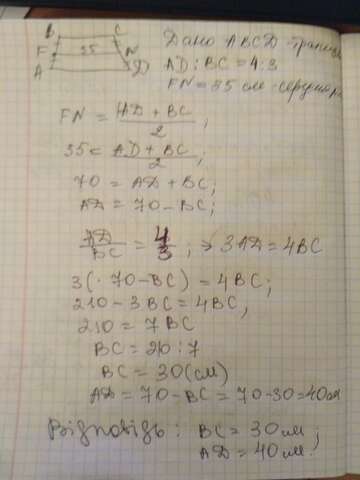 B C
Дано ABCD - трапеція
F 35 N
AD : BC = 4 : 3
A D
FN = 35 см - середня
FN = AD + BC / 2 ;
35 = AD + BC / 2 ;
70 = AD + BC ;
AD = 70 - BC ;
AD / BC = 4 / 3 ; => 3AD = 4BC
3(·70 - BC) = 4BC ;
210 - 3BC = 4BC ,
210 = 7BC
BC = 210 : 7
BC = 30 (см)
AD = 70 - BC = 70 - 30 = 40 см
Відповідь : BC = 30 см ;
AD = 40 см .